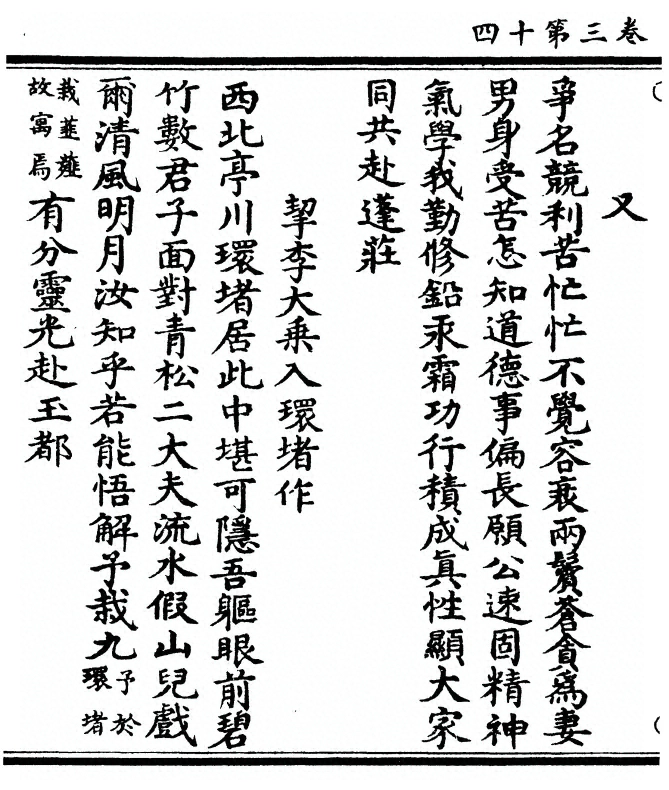 卷三第十四
又
爭名競利苦忙忙不覺容衰兩鬢蒼貪爲妻
男身受苦怎知道德事偏長願公速固精神
氣學我勤修鉛汞霜功行積成眞性顯大家
同共赴蓬莊
挈李大乗入環堵作
西北亭川環堵居此中堪可隱吾軀眼前碧
竹數君子面對青松二大夫流水假山兒戲
爾清風明月汝知乎若能悟解予栽九予於環堵
栽韮薤故寓焉有分靈光赴玉都